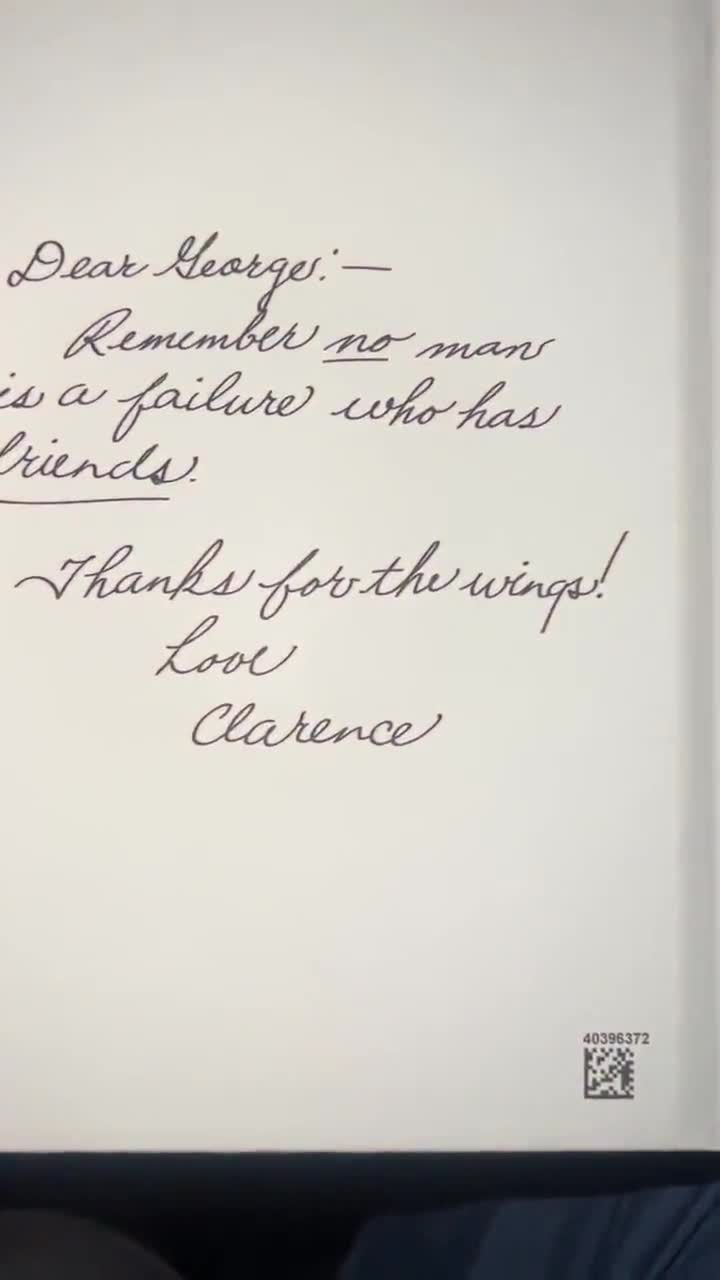 Dear George:—
Remember no man
is a failure who has
friends.
Thanks for the wings!
Love
Clarence
40396372